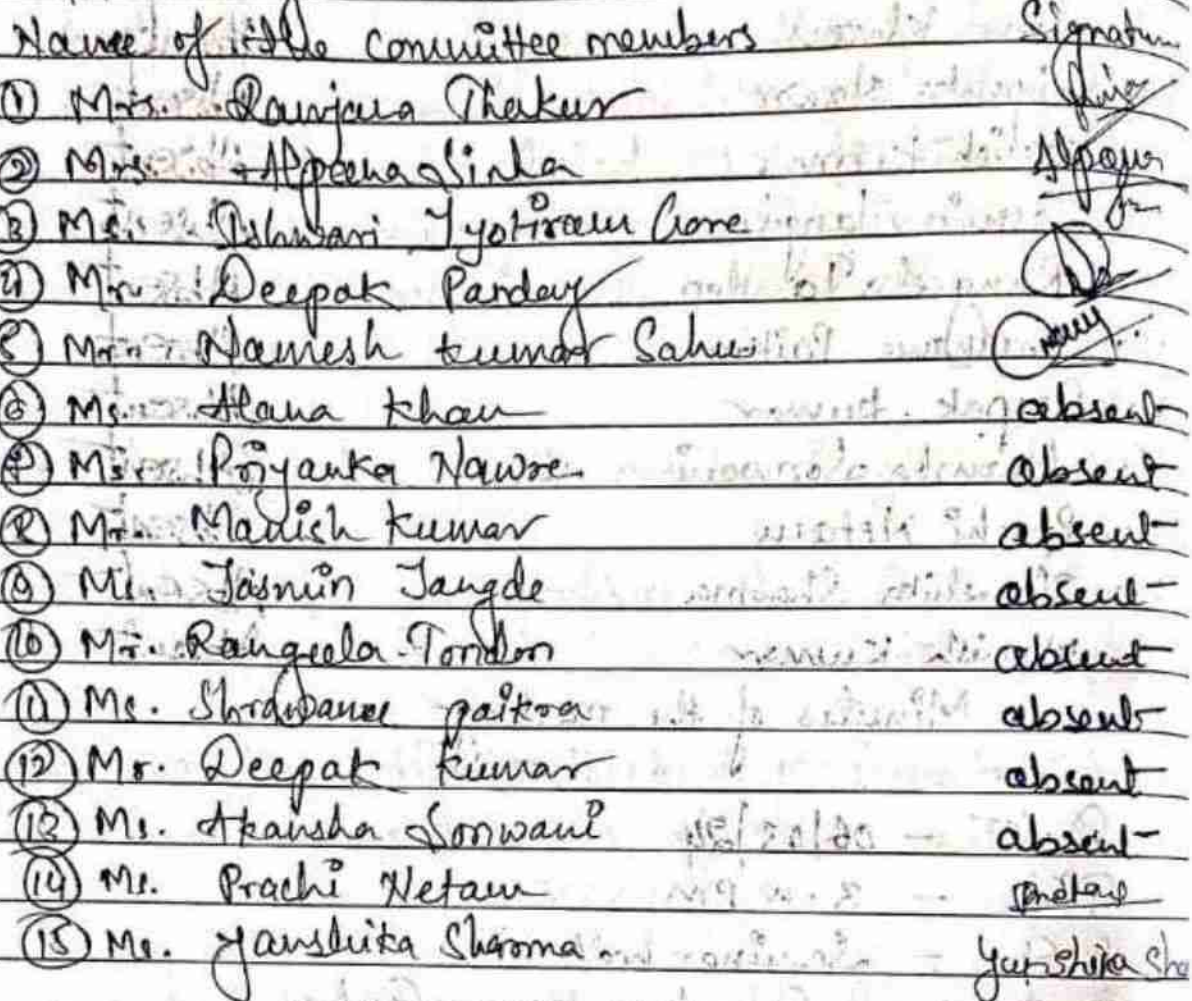 Name of the committee members Signature
① Mrs. Ranjana Thakur
② Mrs. Alpeena Sinha
③ Ms. Ishwari Jyotiram Gore
④ Mr. Deepak Pandey
⑤ Mr. Namesh kumar Sahu
⑥ Ms. Alana khan absent
⑦ Ms. Priyanka Nawre absent
⑧ Mr. Manish kumar absent
⑨ Ms. Jasmin Jangde absent
⑩ Mr. Rangeela Tondon absent
⑪ Ms. Shrawanee paikra absent
⑫ Mr. Deepak kumar absent
⑬ Ms. Akansha Sonwani absent
⑭ Ms. Prachi Netam
⑮ Ms. Yanshika Sharma Yanshika Sha